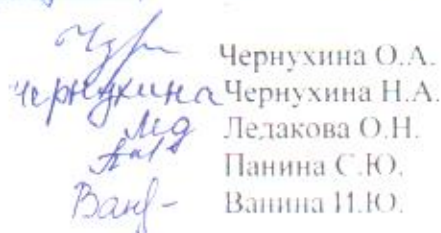 Чернухина О.А.
Чернухина Чернухина Н.А.
Ледакова О.Н.
Панина С.Ю.
Ванина И.Ю.